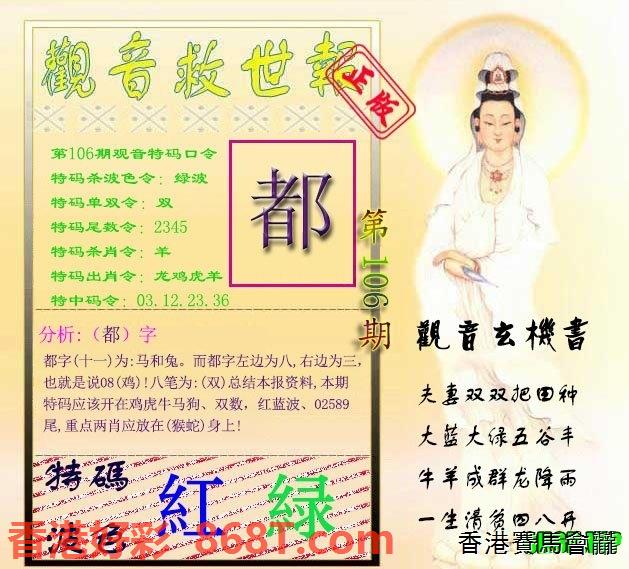 觀音救世報
正版
第106期观音特码口令
特码杀波色令：绿波
特码单双令：双
特码尾数令：2345
特码杀肖令：羊
特码出肖令：龙鸡虎羊
特中码令：03.12.23.36
都
第106期
分析:（都）字
都字(十一)为:马和兔。而都字左边为八,右边为三,
也就是说08(鸡)!八笔为:(双)总结本报资料,本期
特码应该开在鸡虎牛马狗、双数，红蓝波、02589
尾,重点两肖应放在(猴蛇)身上!
觀音玄機書
夫妻双双把田种
大蓝大绿五谷丰
牛羊成群龙降雨
一生清贫四八开
特碼
波色
紅 绿
香港好彩 868T.com
香港賽馬會